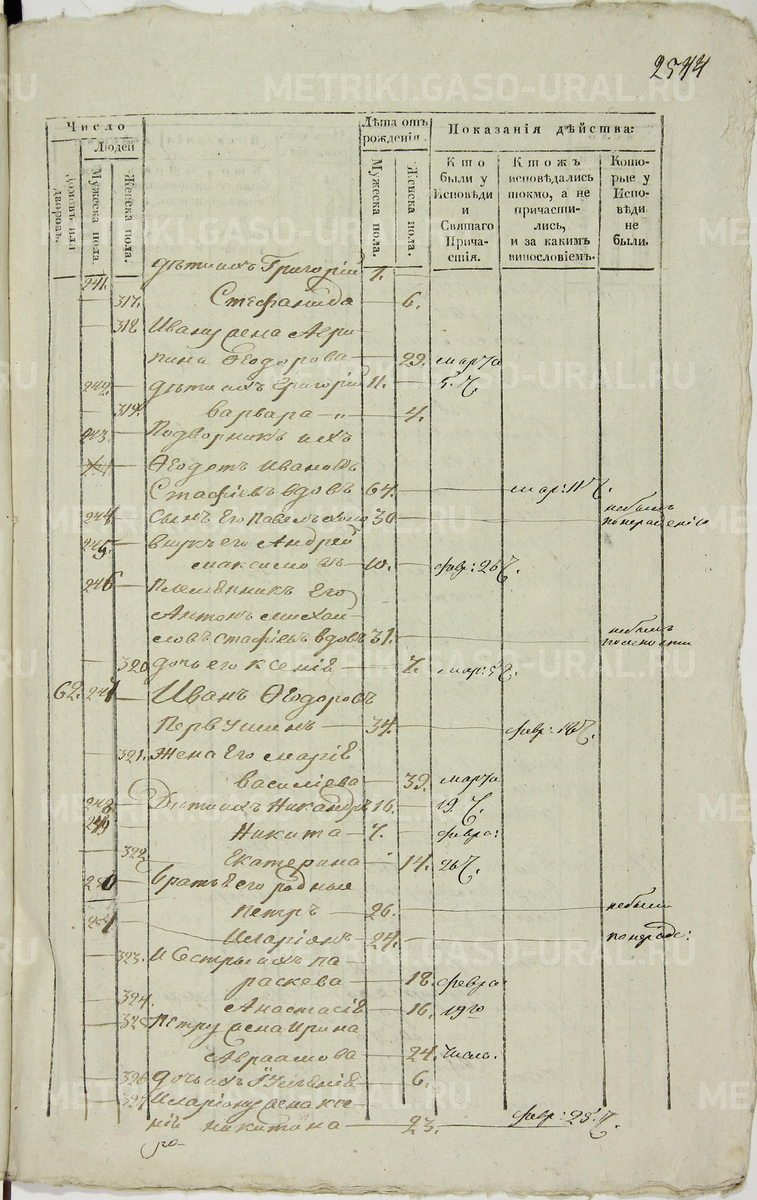 2544
Число
Людей
Домовъ или дворовъ.
Мужеска пола.
Женска пола.
Лѣта отъ рожденія.
Мужеска пола.
Женска пола.
Показанія дѣйства:
Кто были у Исповѣди и Святаго Причастія.
Ктожъ исповѣдались токмо, а не причастились, и за какимъ винословіемъ.
Которые у Исповѣди не были.
241. дѣти ихъ Григорій 1.
317. Стефанида 6.
318. Ивану жена Агри
пина Ѳеодорова 29. марта
242. дѣти ихъ Григорій 11. 5. Ч.
319. Варвара 4.
243. Подворникъ ихъ
Ѳеодотъ Ивановъ
Стафіевъ вдовъ 64. мар: 11 Ч.
244 Сынъ Его Павелъ 30 небылъ
245. внукъ его Андрей понерадѣнію
Максимовъ 10. февр: 26 Ч.
246 Племянникъ Его
Антонъ Михай
ловъ Стафіевъ вдовъ 31. небылъ
320 дочь его Ксенія 7. мар: 5 Ч.
62. 247 Иванъ Ѳеодоровъ
Первушинъ 34. февр: 18 Ч.
321. Жена Его Марія
Василіева 39. марта
248 Дѣти ихъ Никандръ 16. 19 Ч.
249 Никита 7. февра:
322 Екатерина 14. 26 Ч.
250 братья Его родные
Петръ 26. небыли
251 Иларіонъ 24. понерадѣ:
323. И Сестры ихъ Па
раскева 18. февра:
324. Анастасія 16. 19го
325 Петру жена Ирина
Авраамова 24. числа.
326 дочь ихъ 6.
327 Иларіону жена Ксе
нія Никитина 23. февр: 25. Ч.
METRIKI.GASO-URAL.RU